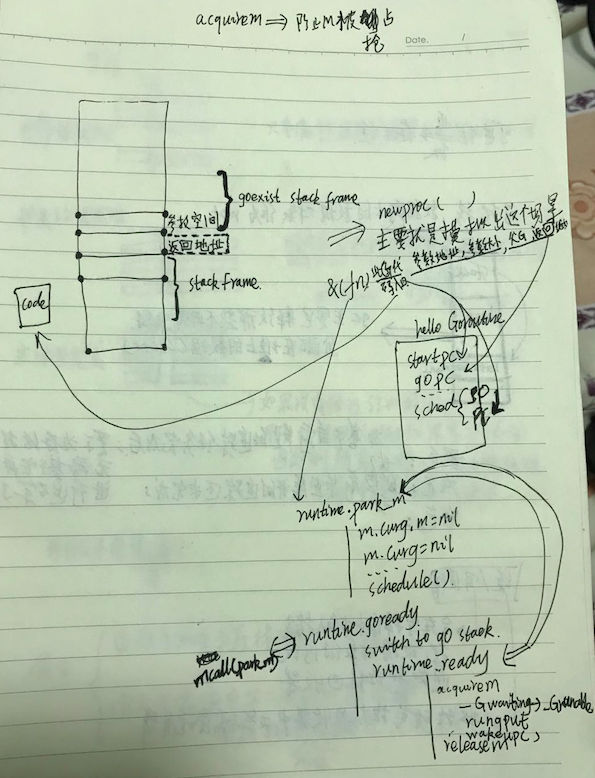 acquirem ⇒ 防止M被抢占
Date. /
goexist stack frame
参数空间
返回地址
stack frame.
code
⇒ newproc( )
主要就是模拟出这个场景
&(fn)
参数地址, 参数大小, 父G 返回地址
hello Goroutine
startpc
gopc
sched { SP
PC
runtime.park_m
m.curg.m=nil
m.curg=nil
....
schedule().
mcall(park_m) ⇔ runtime.goready
switch to g0 stack.
runtime.ready
acquirem
_Gwaiting→_Grunnable
runqput
wakeup()
releasem